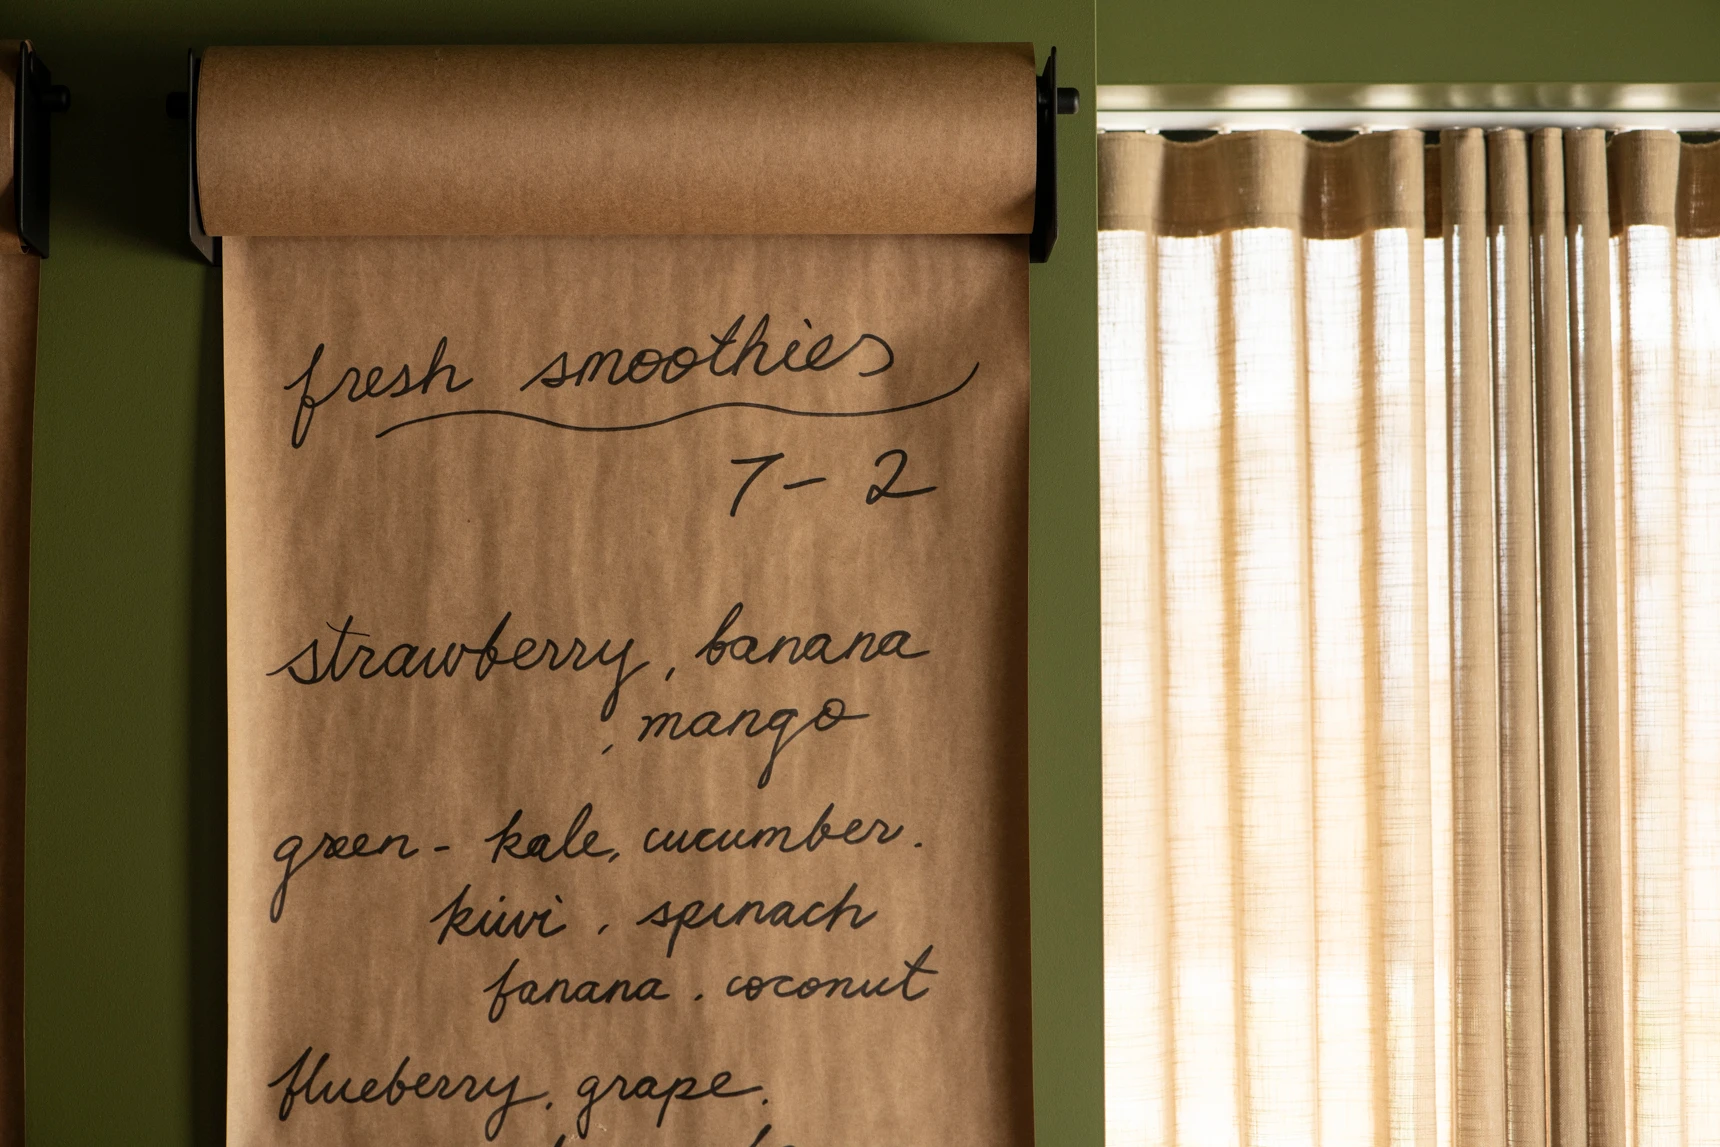 fresh smoothies
7 - 2
strawberry, banana
, mango
green - kale, cucumber.
kiwi, spinach
banana. coconut
blueberry. grape.